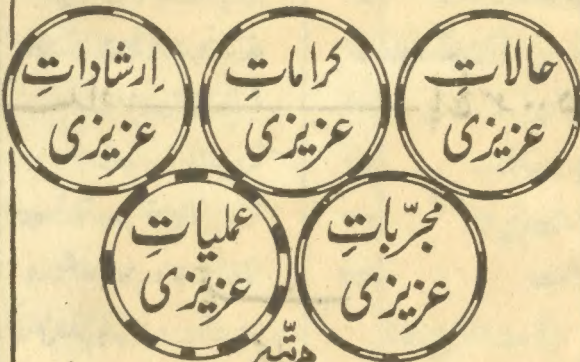 حالاتِ
عزیزی
کراماتِ
عزیزی
اِرشاداتِ
عزیزی
مجرّباتِ
عزیزی
عملیاتِ
عزیزی
مرتّبہ